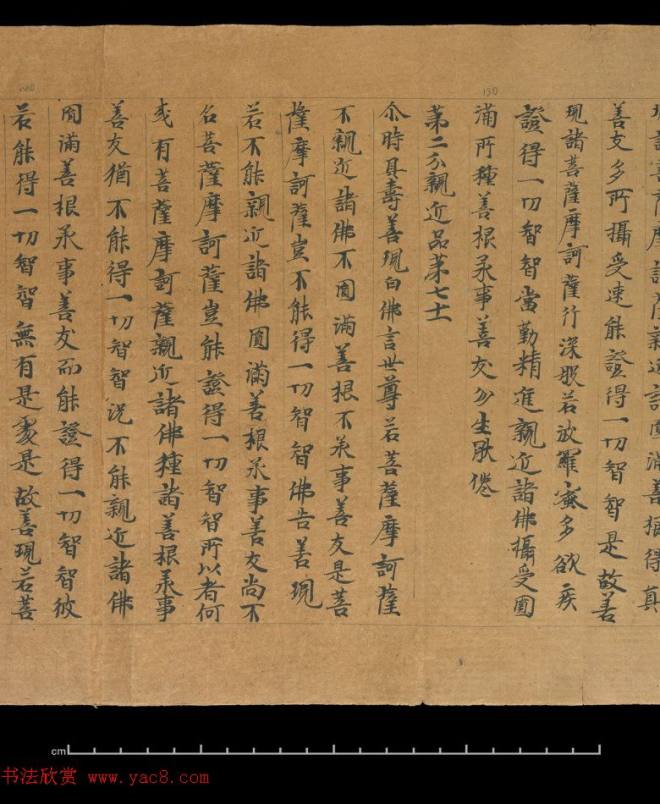 菩薩摩訶薩親近諸圓滿善根得真
善友多所攝受速能證得一切智智是故善
現諸菩薩摩訶薩行深般若波羅蜜多欲疾
證得一切智智當勤精進親近諸佛攝受圓
130
滿所種善根承事善友勿生厭倦
第二分親近品第七十一
尒時具壽善現白佛言世尊若菩薩摩訶薩
不親近諸佛不圓滿善根不承事善友是菩
薩摩訶薩豈不能得一切智智佛告善現
若不能親近諸佛圓滿善根承事善友尚不
名菩薩摩訶薩豈能證得一切智智所以者何
或有菩薩摩訶薩親近諸佛種諸善根承事
善友猶不能得一切智智況不能親近諸佛
圓滿善根承事善友而能證得一切智智彼
若能得一切智智無有是處是故善現若菩
cm
书法欣赏 www.yac8.com